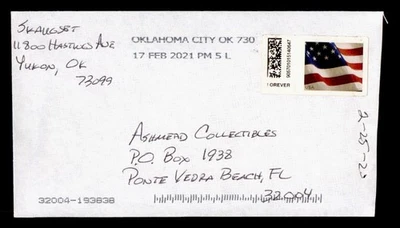 SKAUGSET
11800 HASTINGS AVE
YUKON, OK
73099
OKLAHOMA CITY OK 730
17 FEB 2021 PM 5 L
FOREVER
USA
ASHMEAD COLLECTIBLES
P.O. BOX 1938
PONTE VEDRA BEACH, FL
32004
2-25-20
32004-193838